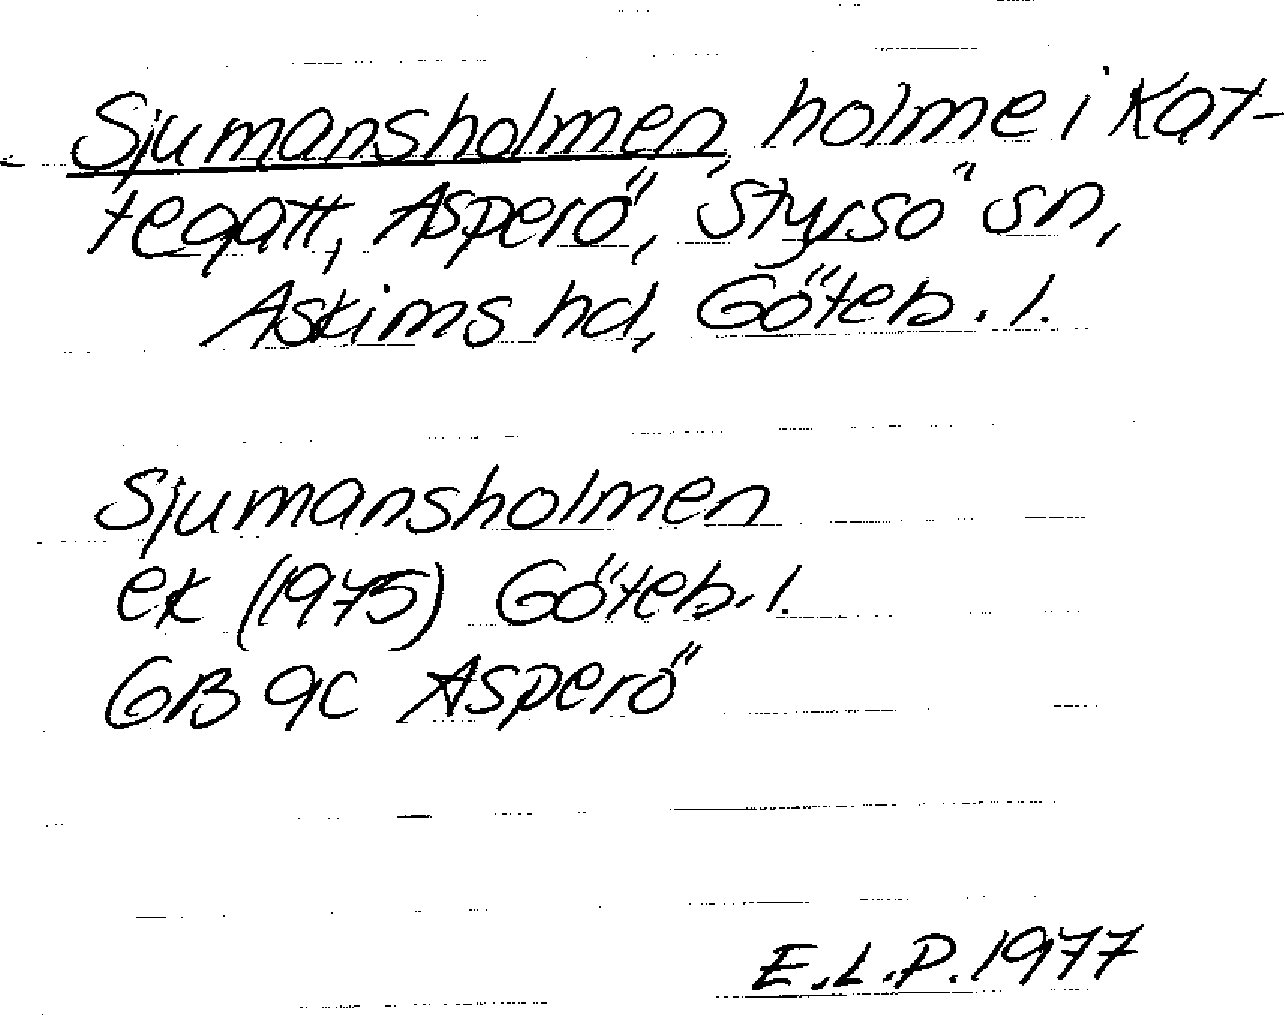 Sjumansholmen, holme i Kat-
tegatt, Asperö, Styrsö sn,
Askims hd, Göteb. l.
Sjumansholmen
ek (1975) Göteb. l.
GB 9c Asperö
E.L.P. 1977